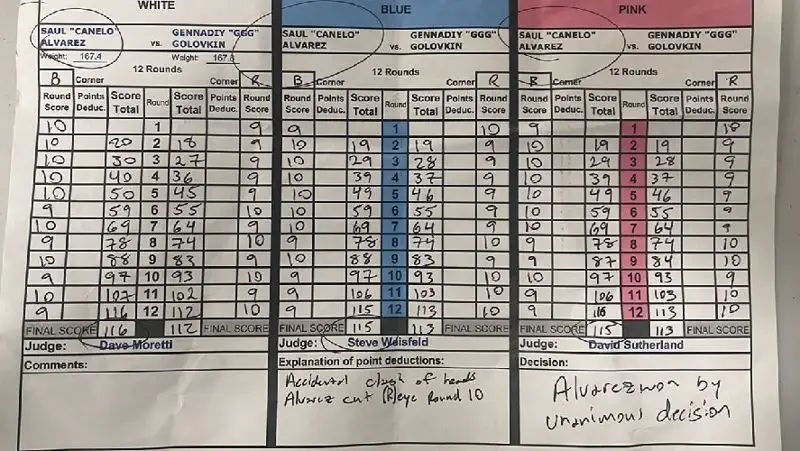 WHITE BLUE PINK
SAUL "CANELO" ALVAREZ vs. GENNADIY "GGG" GOLOVKIN
Weight: 167.4 Weight: 167.8
12 Rounds
B Corner Corner R
Round Score Points Deduc. Score Total Round Score Total Points Deduc. Round Score
10 1 9
10 20 2 18 9
10 30 3 27 9
10 40 4 36 9
10 50 5 45 9
9 59 6 55 10
10 69 7 64 9
9 78 8 74 10
10 88 9 83 9
9 97 10 93 10
10 107 11 102 9
9 116 12 112 10
FINAL SCORE 116 112 FINAL SCORE
Judge: Dave Moretti
Comments:
SAUL "CANELO" ALVAREZ vs. GENNADIY "GGG" GOLOVKIN
12 Rounds
B Corner Corner R
Round Score Points Deduc. Score Total Round Score Total Points Deduc. Round Score
9 1 10
10 19 2 19 9
10 29 3 28 9
10 39 4 37 9
10 49 5 46 9
10 59 6 55 9
10 69 7 64 9
9 78 8 74 10
10 88 9 83 9
9 97 10 93 10
9 106 11 103 10
9 115 12 113 10
FINAL SCORE 115 113 FINAL SCORE
Judge: Steve Weisfeld
Explanation of point deductions:
Accidental clash of heads
Alvarez cut (R)eye Round 10
SAUL "CANELO" ALVAREZ vs. GENNADIY "GGG" GOLOVKIN
12 Rounds
B Corner Corner R
Round Score Points Deduc. Score Total Round Score Total Points Deduc. Round Score
9 1 10
10 19 2 19 9
10 29 3 28 9
10 39 4 37 9
10 49 5 46 9
10 59 6 55 9
10 69 7 64 9
9 78 8 74 10
9 87 9 84 10
10 97 10 93 9
9 106 11 103 10
9 12 113 10
FINAL SCORE 115 113 FINAL SCORE
Judge: David Sutherland
Decision:
Alvarez won by
unanimous decision